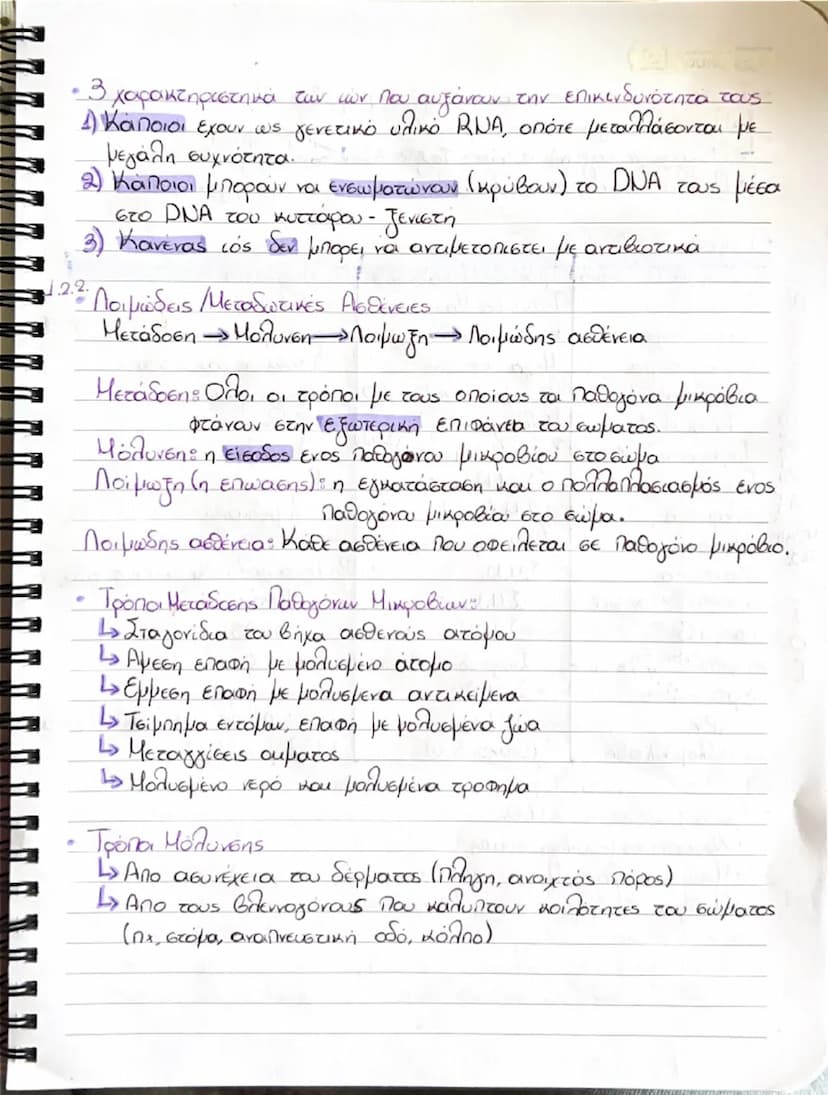 • 3 χαρακτηριστικά των ιών που αυξάνουν την επικινδυνότητά τους
1) Κάποιοι έχουν ως γενετικό υλικό RNA, οπότε μεταλλάσονται με
μεγάλη συχνότητα.
2) Κάποιοι μπορούν να ενσωματώνουν (κρύβουν) το DNA τους μέσα
στο DNA του κυττάρου - ξενιστή
3) Κανένας ιός δεν μπορεί να αντιμετοπιστεί με αντιβιοτικά
1.2.2.
• Λοιμώδεις /Μεταδωτικές Ασθένειες
Μετάδοση → Μόλυνση → Λοιμωξη → Λοιμώδης ασθένεια
Μετάδοση: Όλοι οι τρόποι με τους οποίους τα παθογόνα μικρόβια
φτάνουν στην εξωτερική επιφάνεια του σώματος.
Μόλυνση: η είσοδος ενος παθογόνου μικροβίου στο σώμα
Λοίμωξη (η επωασης): η εγκατάσταση και ο πολλαπλασιασμός ενος
παθογόνου μικροβίου στο σώμα.
Λοιμώδης ασθένεια: Κάθε ασθένεια που οφειλεται σε παθογόνο μικρόβιο.
• Τρόποι Μετάδοσης Παθογόνων Μικροβίων:
↳ Σταγονίδια του βήχα ασθενούς ατόμου
↳ Άμεση επαφή με μολυσμένο άτομο
↳ Εμμεση επαφή με μολυσμενα αντικείμενα
↳ Τσίμπημα εντόμων, επαφή με μολυσμένα ζώα
↳ Μεταγγίσεις αιματος
↳ Μολυσμένο νερό και μολυσμένα τροφημα
• Τρόποι Μόλυνσης
↳ Απο ασυνέχεια του δέρματος (πληγη, ανοιχτός πόρος)
↳ Απο τους βλεννογόνους που καλυπτουν κοιλότητες του σώματος
(πχ, στόμα, αναπνευστική οδό, κόλπο)